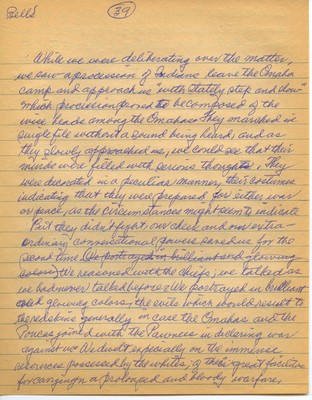 Bells
39
While we were deliberating over the matter,
we saw a procession of Indians leave the Omaha
camp and approach us "with stately step and slow"
which procession proved to be composed of the
wise heads among the Omahas. They marched in
single file without a sound being heard, and as
they slowly approached us, we could see that their
minds were filled with serious thoughts. They
were decorated in a peculiar manner, their costumes
indicating that they were prepared for either war
or peace, as the circumstances might seem to indicate
But they didn't fight, our cheek and our extra-
ordinary conversational powers saved us for the
second time. We portrayed in brilliant and glowing
colors We reasoned with the chiefs; we talked as
we had never talked before. We portrayed in brilliant
and glowing colors, the evils which would result to
the redskins generally in case the Omahas and the
Poncas joined with the Pawnees in declaring war
against us. We dwelt especially on the immense
resources possessed by the whites, of their great facilities
for carrying on a prolonged and bloody warfare,